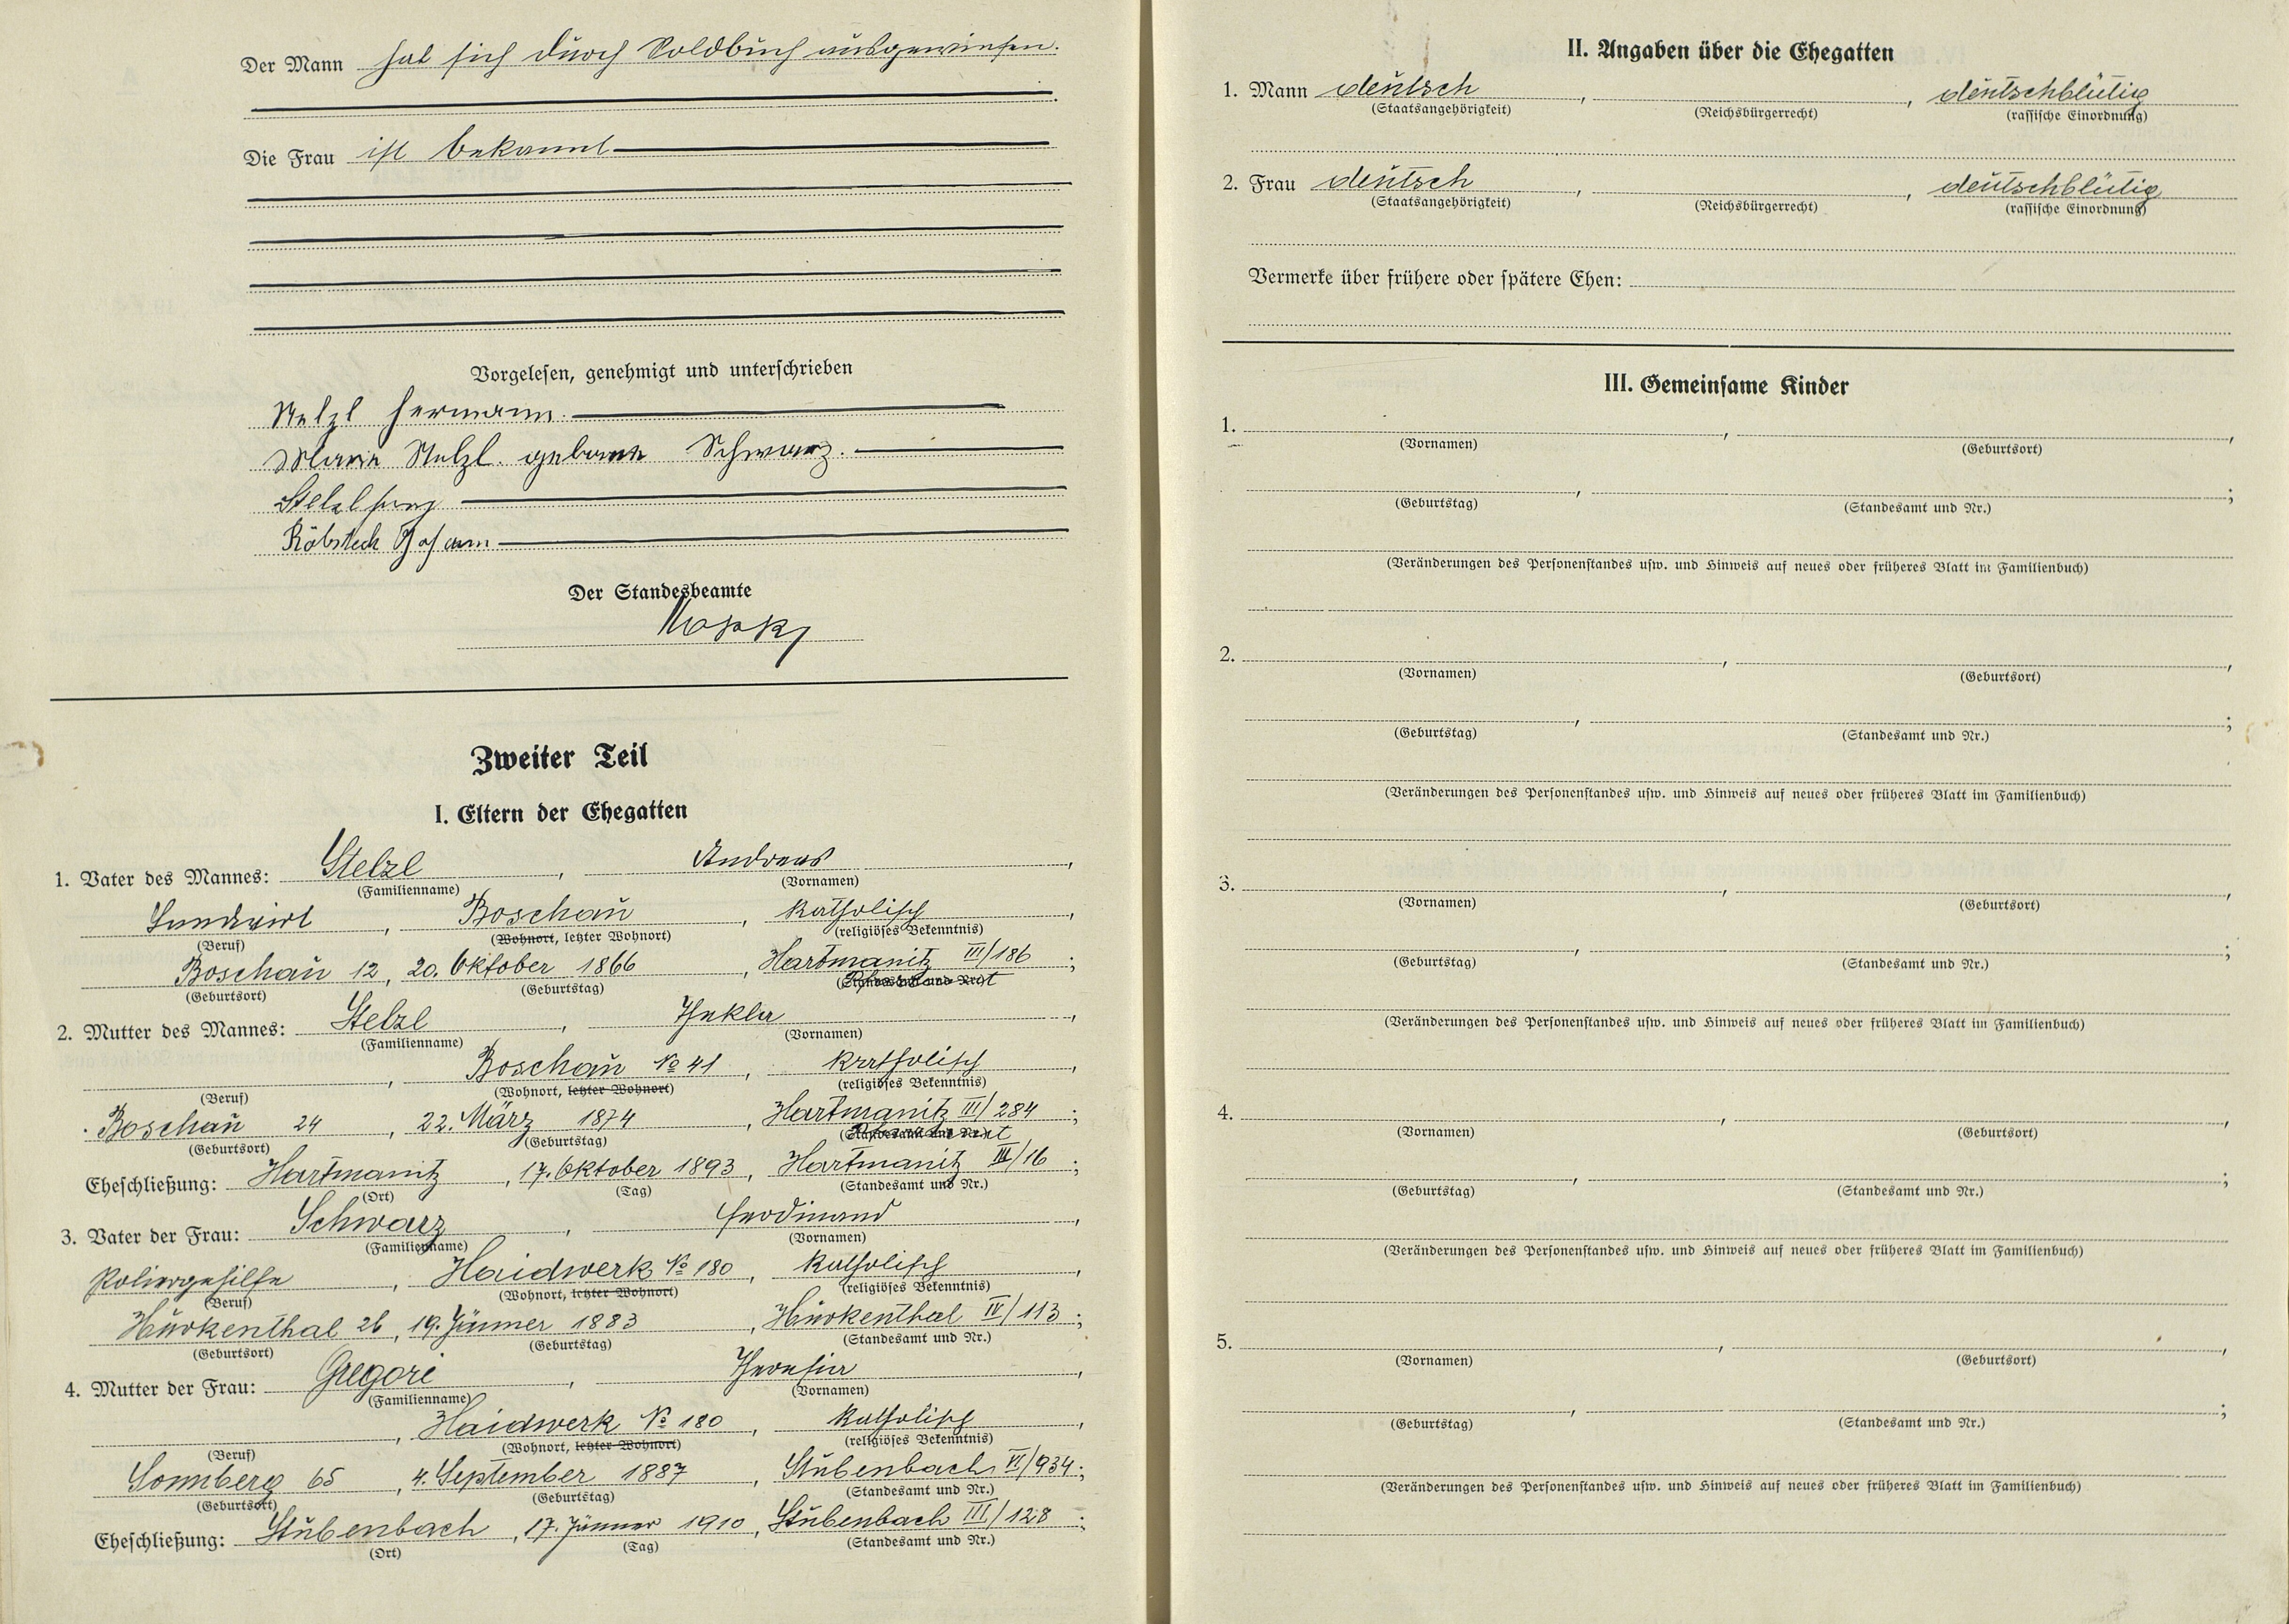 Der Mann hat sich durch Soldbuch ausgewiesen.
Die Frau ist bekannt
Vorgelesen, genehmigt und unterschrieben
Stelzl Hermann.
Maria Stelzl. geborene Schwarz.
Stelzl
Johann
Der Standesbeamte
Zweiter Teil
I. Eltern der Ehegatten
1. Vater des Mannes: Stelzl, Andreas,
(Familienname) (Vornamen)
Landwirt, Boschau, katholisch,
(Beruf) (Wohnort, letzter Wohnort) (religiöses Bekenntnis)
Boschau 12, 20. Oktober 1866, Hartmanitz III/186;
(Geburtsort) (Geburtstag) (Standesamt und Nr.)
2. Mutter des Mannes: Stelzl, Thekla,
(Familienname) (Vornamen)
, Boschau № 41, katholisch,
(Beruf) (Wohnort, letzter Wohnort) (religiöses Bekenntnis)
Boschau 24, 22. März 1874, Hartmanitz III/284;
(Geburtsort) (Geburtstag) (Standesamt und Nr.)
Eheschließung: Hartmanitz, 17. Oktober 1893, Hartmanitz III/16;
(Ort) (Tag) (Standesamt und Nr.)
3. Vater der Frau: Schwarz, Ferdinand,
(Familienname) (Vornamen)
Poliergehilfe, Haidwerk № 180, katholisch,
(Beruf) (Wohnort, letzter Wohnort) (religiöses Bekenntnis)
Hurkenthal 26, 19. Jänner 1883, Hurkenthal IV/113;
(Geburtsort) (Geburtstag) (Standesamt und Nr.)
4. Mutter der Frau: Gregori, Theresia,
(Familienname) (Vornamen)
, Haidwerk № 180, katholisch,
(Beruf) (Wohnort, letzter Wohnort) (religiöses Bekenntnis)
Sonnberg 65, 4. September 1887, Stubenbach VI/934;
(Geburtsort) (Geburtstag) (Standesamt und Nr.)
Eheschließung: Stubenbach, 17. Jänner 1910, Stubenbach III/128;
(Ort) (Tag) (Standesamt und Nr.)
II. Angaben über die Ehegatten
1. Mann deutsch, , deutschblütig
(Staatsangehörigkeit) (Reichsbürgerrecht) (rassische Einordnung)
2. Frau deutsch, , deutschblütig
(Staatsangehörigkeit) (Reichsbürgerrecht) (rassische Einordnung)
Vermerke über frühere oder spätere Ehen:
III. Gemeinsame Kinder
1. , ,
(Vornamen) (Geburtsort)
, ;
(Geburtstag) (Standesamt und Nr.)
(Veränderungen des Personenstandes usw. und Hinweis auf neues oder früheres Blatt im Familienbuch)
2. , ,
(Vornamen) (Geburtsort)
, ;
(Geburtstag) (Standesamt und Nr.)
(Veränderungen des Personenstandes usw. und Hinweis auf neues oder früheres Blatt im Familienbuch)
3. , ,
(Vornamen) (Geburtsort)
, ;
(Geburtstag) (Standesamt und Nr.)
(Veränderungen des Personenstandes usw. und Hinweis auf neues oder früheres Blatt im Familienbuch)
4. , ,
(Vornamen) (Geburtsort)
, ;
(Geburtstag) (Standesamt und Nr.)
(Veränderungen des Personenstandes usw. und Hinweis auf neues oder früheres Blatt im Familienbuch)
5. , ,
(Vornamen) (Geburtsort)
, ;
(Geburtstag) (Standesamt und Nr.)
(Veränderungen des Personenstandes usw. und Hinweis auf neues oder früheres Blatt im Familienbuch)